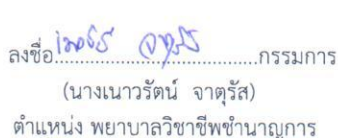 ลงชื่อ................................กรรมการ
(นางเนาวรัตน์ จาตุรัส)
ตำแหน่ง พยาบาลวิชาชีพชำนาญการ